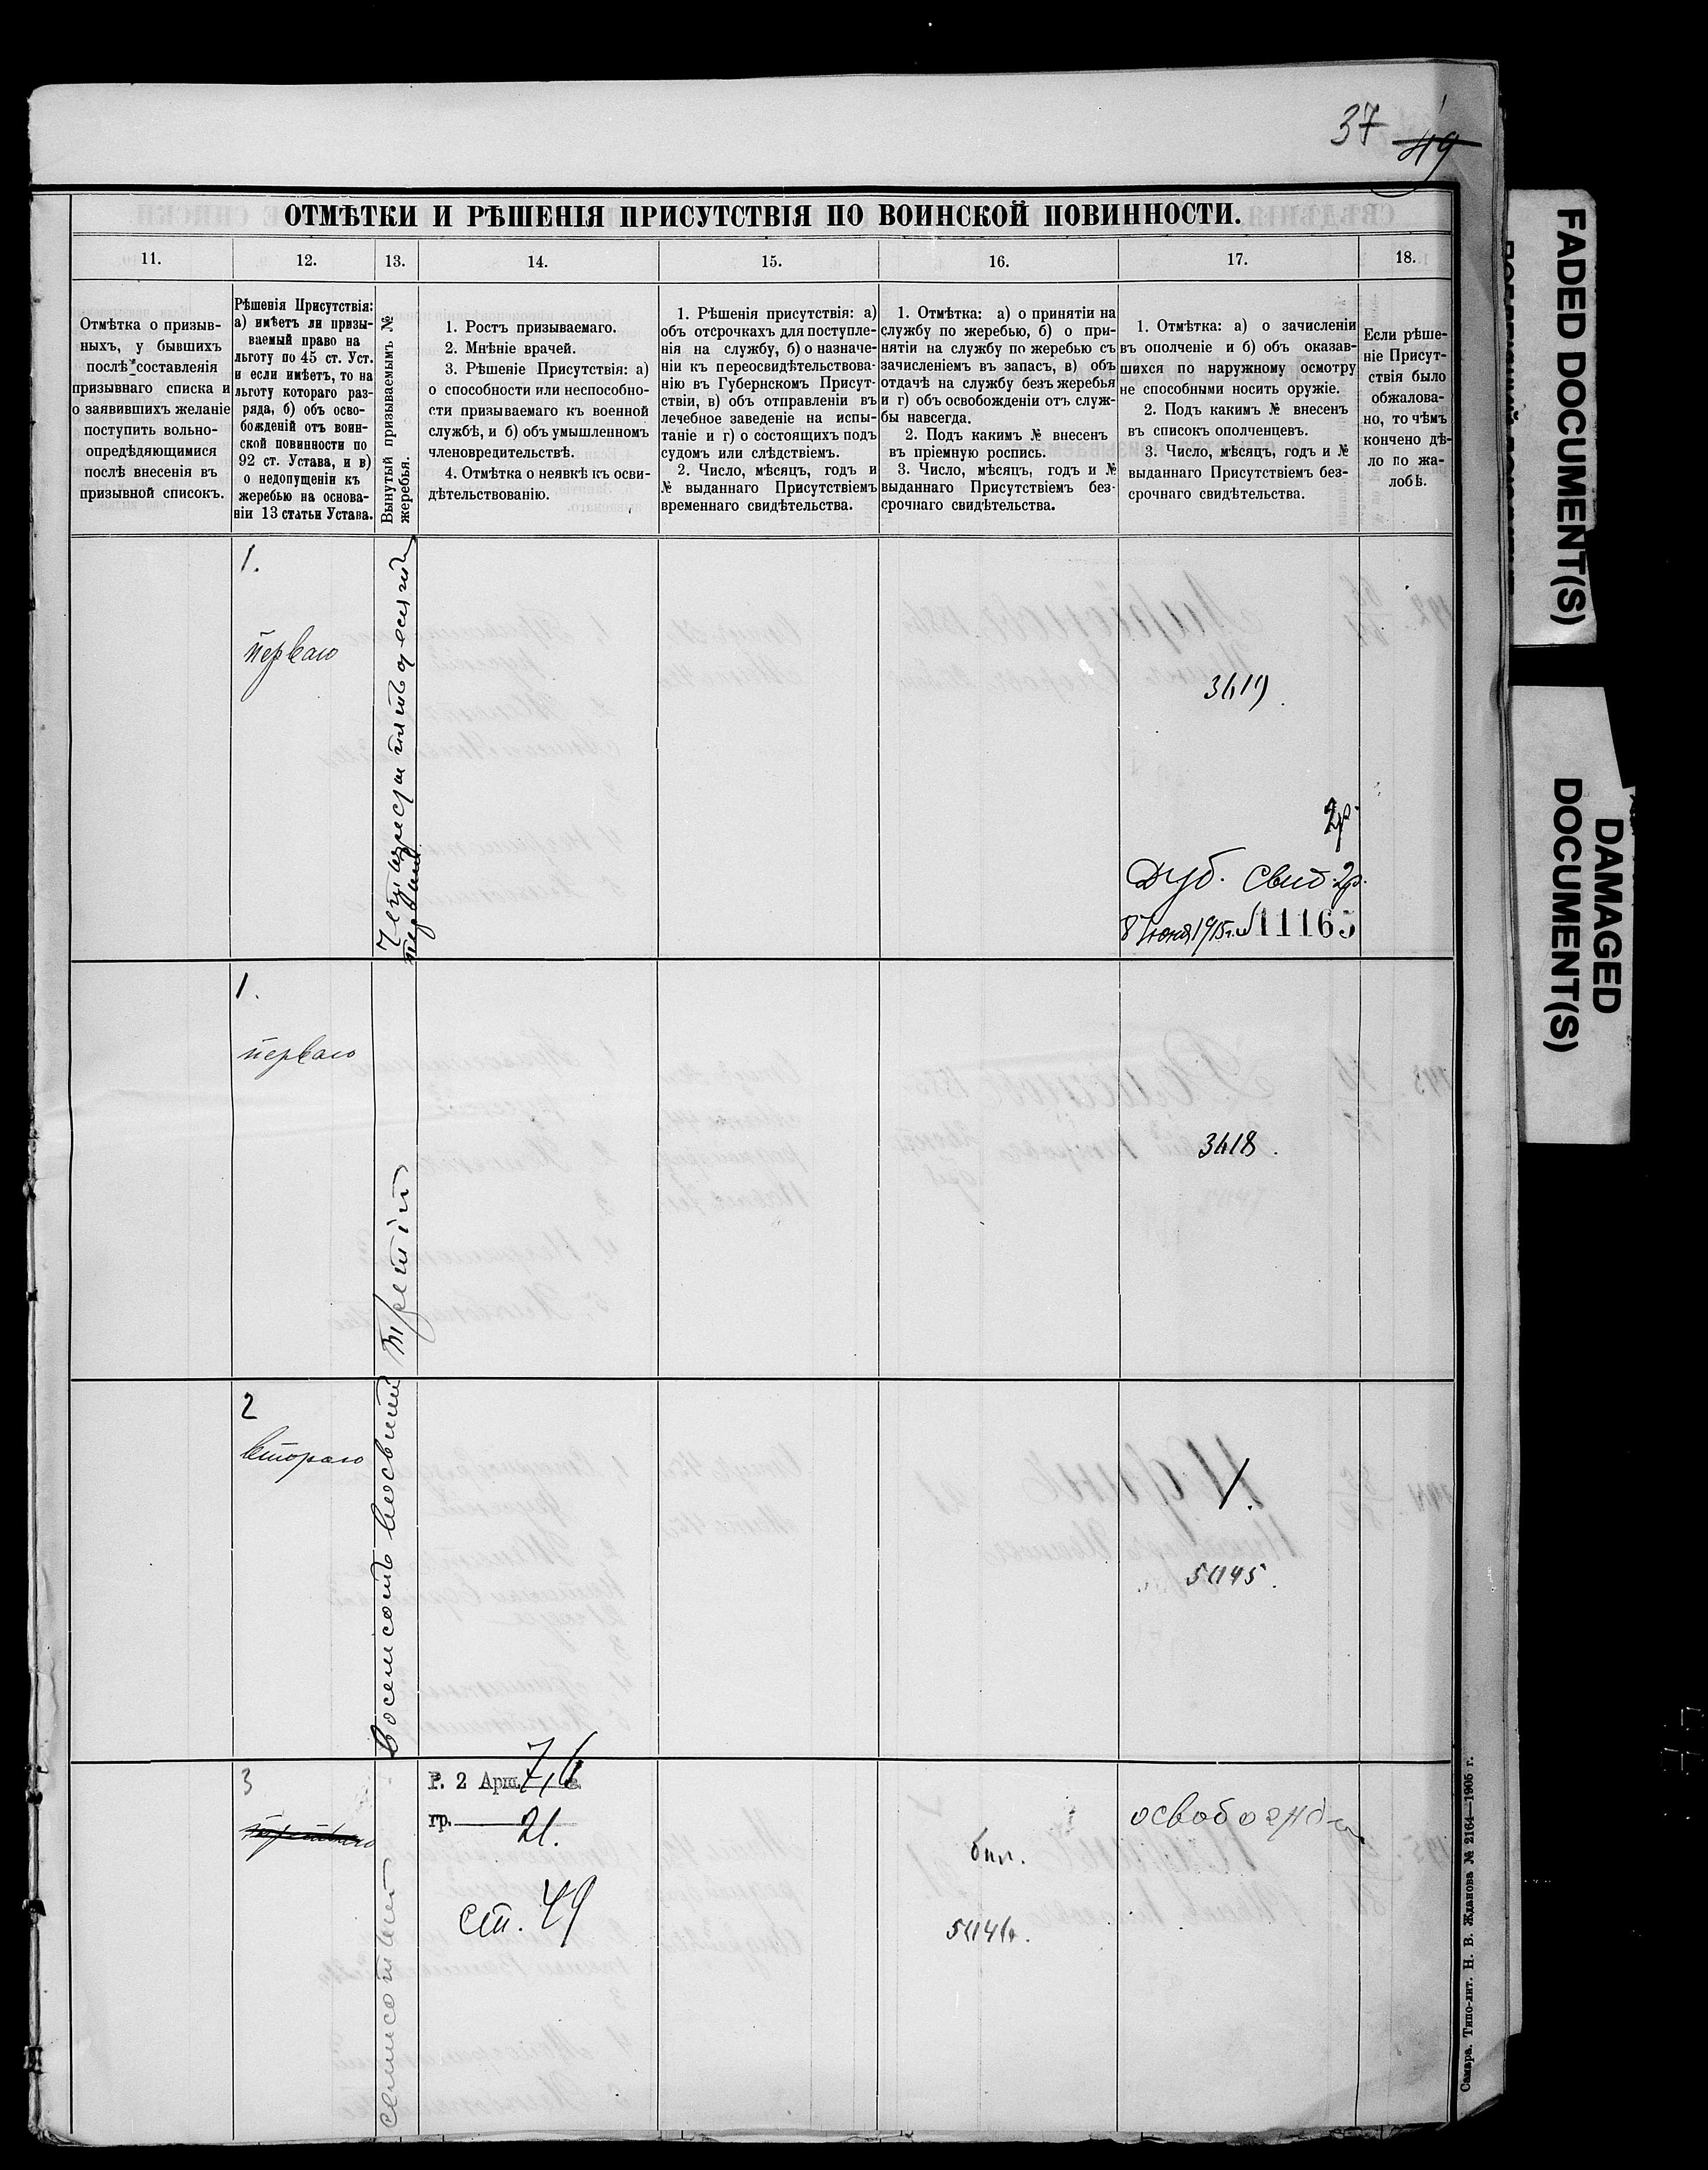 37 49
ОТМѢТКИ И РѢШЕНІЯ ПРИСУТСТВІЯ ПО ВОИНСКОЙ ПОВИННОСТИ.
11.
12.
13.
14.
15.
16.
17.
18.
Отмѣтка о призыв-
ныхъ, у бывшихъ
послѣ составленія
призывнаго списка и
о заявившихъ желаніе
поступить вольно-
опредѣдяющимися
послѣ внесенія въ
призывной списокъ.
Рѣшенія Присутствія:
а) имѣетъ ли призы-
ваемый право на
льготу по 45 ст. Уст.
и если имѣетъ, то на
льготу котораго раз-
ряда, б) объ осво-
божденій отъ воин-
ской повинности по
92 ст. Устава, и в)
о недопущеніи къ
жеребью на основа-
ніи 13 статьи Устава.
Вынутый призываемымъ №
жеребья.
1. Ростъ призываемаго.
2. Мнѣніе врачей.
3. Рѣшеніе Присутствія: а)
о способности или неспособно-
сти призываемаго къ военной
службѣ, и б) объ умышленномъ
членовредительствѣ.
4. Отмѣтка о неявкѣ къ осви-
дѣтельствованію.
1. Рѣшенія присутствія: а)
объ отсрочкахъ для поступле-
нія на службу, б) о назначе-
ніи къ переосвидѣтельствова-
нію въ Губернскомъ Присут-
ствіи, в) объ отправленіи въ
лечебное заведеніе на испы-
таніе и г) о состоящихъ подъ
судомъ или слѣдствіемъ.
2. Число, мѣсяцъ, годъ и
№ выданнаго Присутствіемъ
временнаго свидѣтельства.
1. Отмѣтка: а) о принятіи на
службу по жеребью, б) о при-
нятіи на службу по жеребью съ
зачисленіемъ въ запасъ, в) объ
отдачѣ на службу безъ жеребья
и г) объ освобожденіи отъ служ-
бы навсегда.
2. Подъ какимъ № внесенъ
въ пріемную роспись.
3. Число, мѣсяцъ, годъ и №
выданнаго Присутствіемъ без-
срочнаго свидѣтельства.
1. Отмѣтка: а) о зачисленіи
въ ополченіе и б) объ оказав-
шихся по наружному осмотру
не способными носить оружіе.
2. Подъ какимъ № внесенъ
въ списокъ ополченцевъ.
3. Число, мѣсяцъ, годъ и №
выданнаго Присутствіемъ без-
срочнаго свидѣтельства.
Если рѣше-
ніе Присут-
ствія было
обжалова-
но, то чѣмъ
кончено дѣ-
ло по жа-
лобѣ.
1.
перваго
первый
2р.
Дуб. свид. 2р.
8 Іюня 1915 г. № 11165
1.
перваго
третій
3418.
2
втораго
Восемсотъ восьмый
V.
5045.
3
семисотый
Р. 2 Арш. 7,6
гр. 21.
ст. 49
бил.
5046.
освобожд
Самара. Типо-лит. Н. В. Жданова № 2164—1905 г.
FADED DOCUMENT(S)
DAMAGED
DOCUMENT(S)